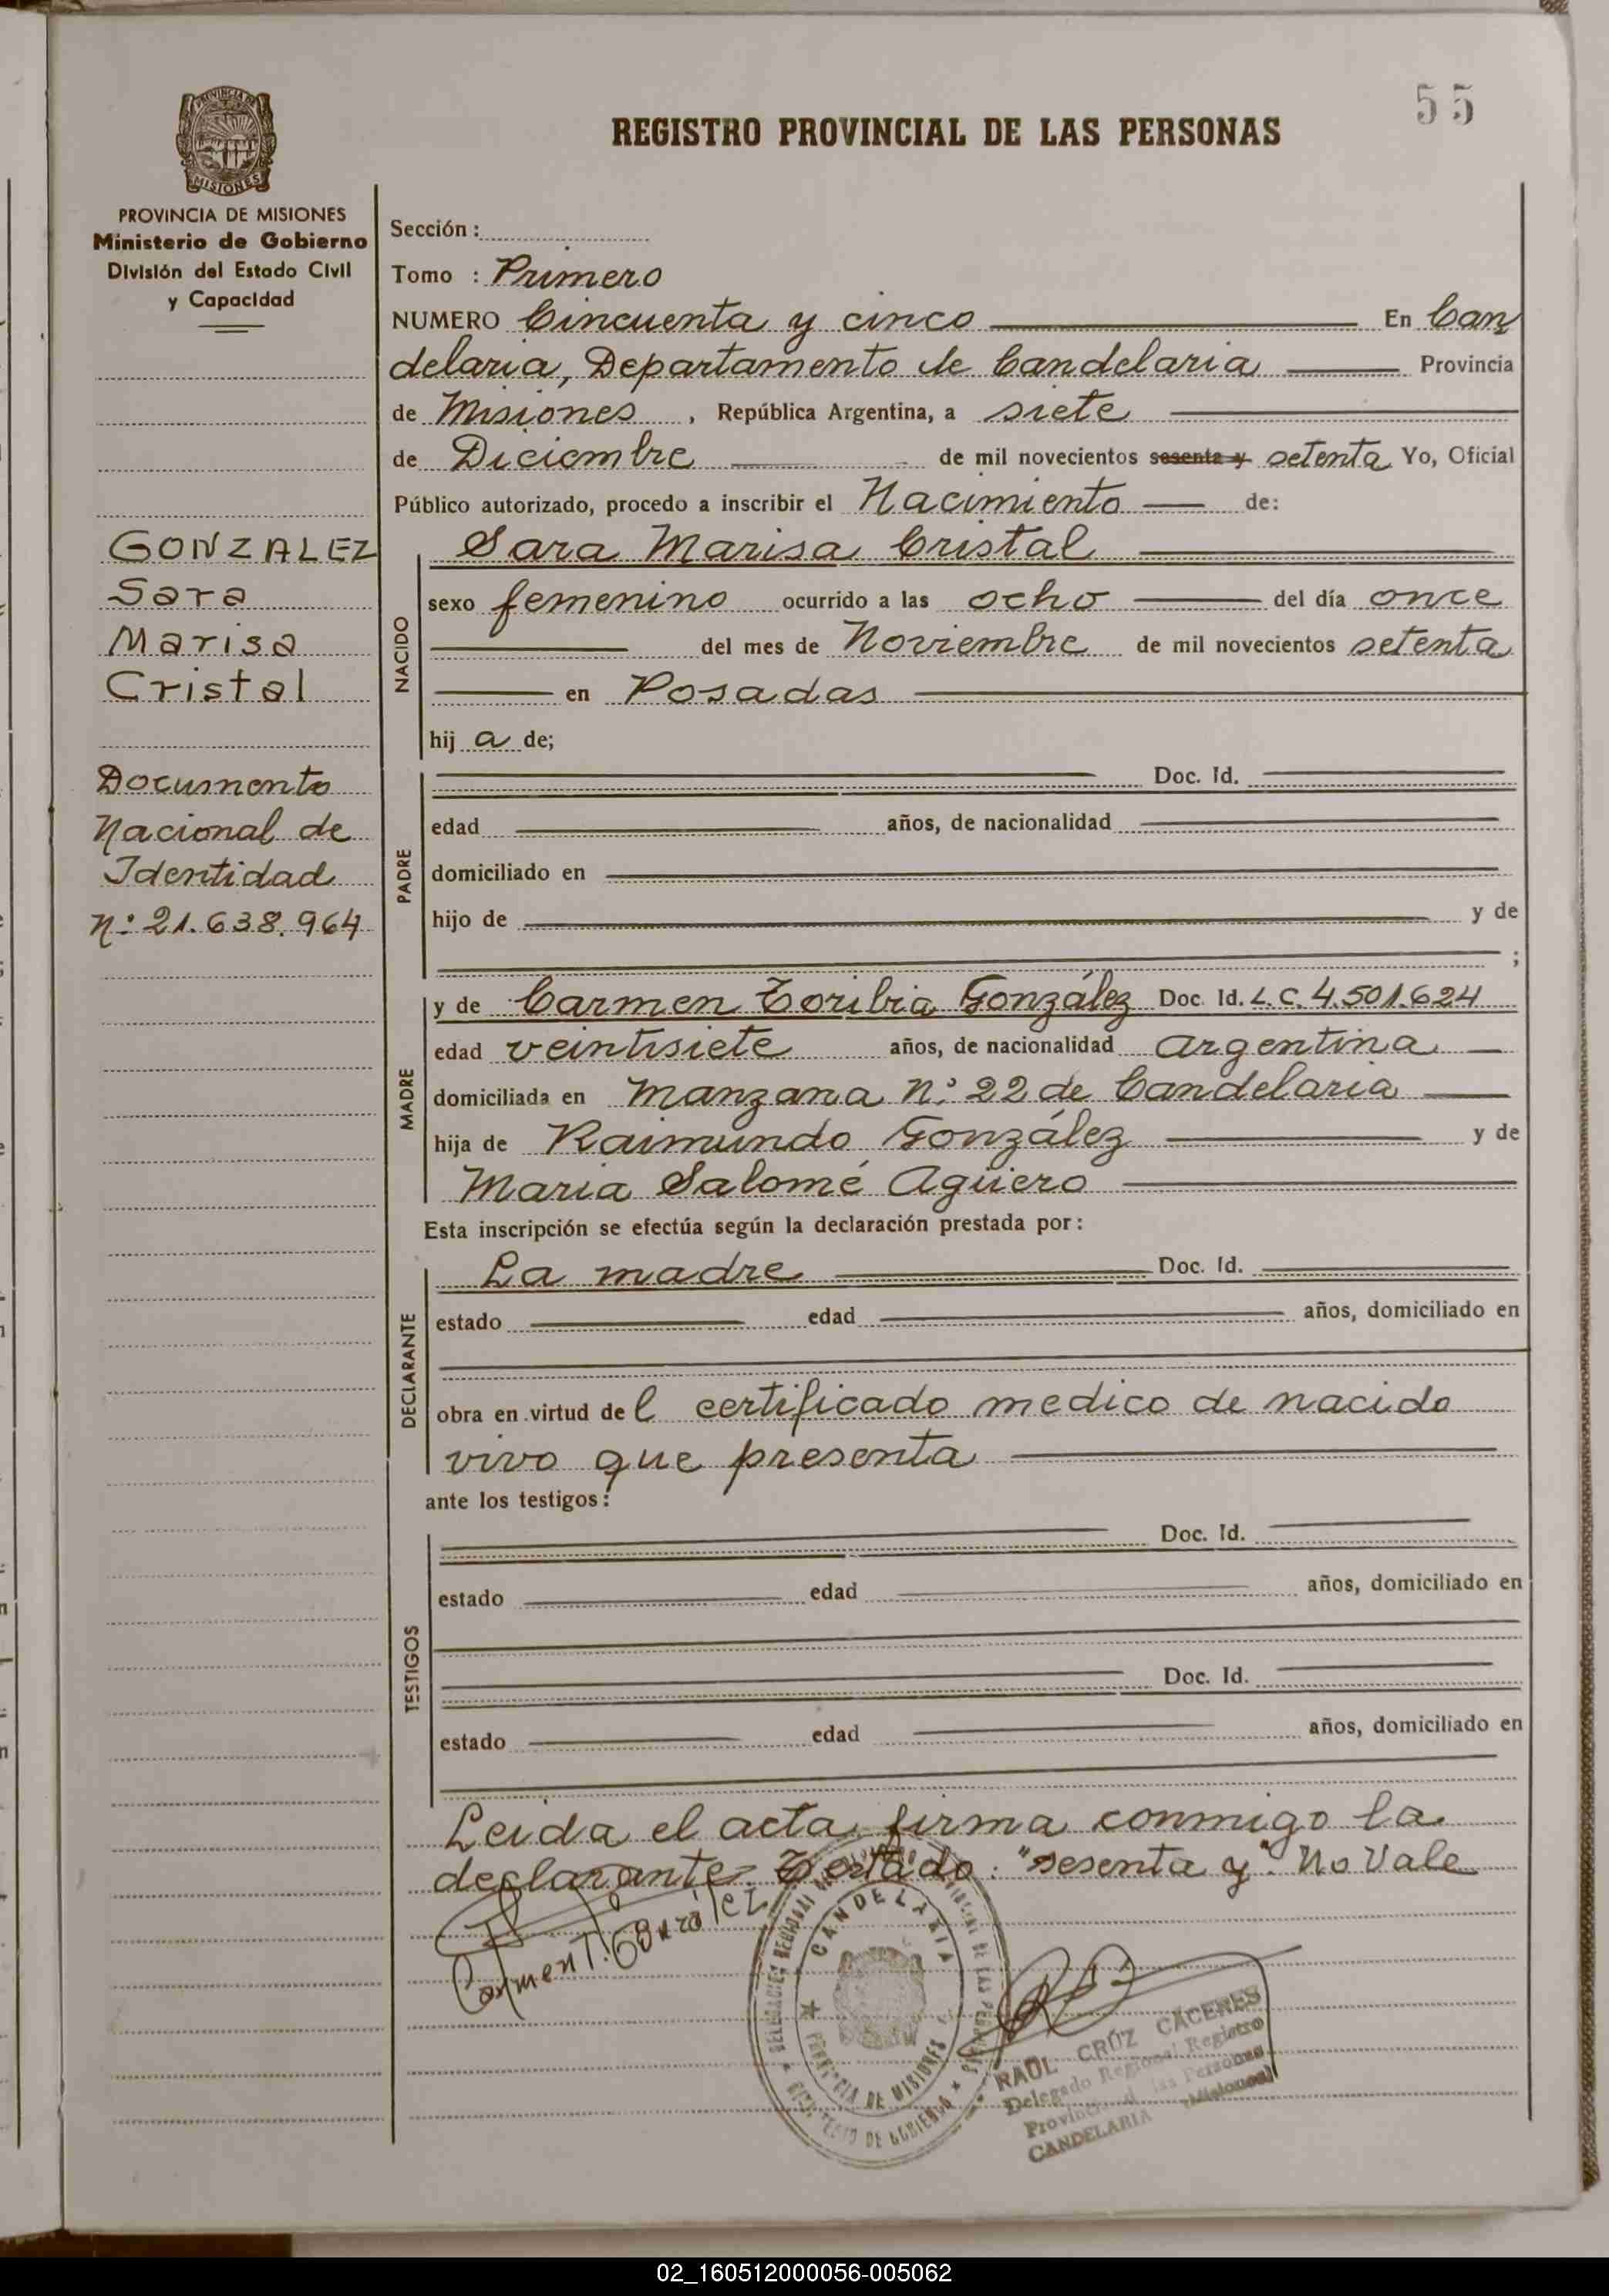 55
REGISTRO PROVINCIAL DE LAS PERSONAS
PROVINCIA DE MISIONES
PROVINCIA DE MISIONES
Ministerio de Gobierno
División del Estado Civil
y Capacidad
GONZALEZ
Sara
Marisa
Cristal
Documento
Nacional de
Identidad
Nº 21.638.964
Sección :
Tomo : Primero
NUMERO Cincuenta y cinco En Can
delaria, Departamento de Candelaria Provincia
de Misiones , República Argentina, a siete
de Diciembre de mil novecientos sesenta y setenta Yo, Oficial
Público autorizado, procedo a inscribir el Nacimiento de:
NACIDO
Sara Marisa Cristal
sexo femenino ocurrido a las ocho del día once
del mes de Noviembre de mil novecientos setenta
en Posadas
hij a de;
PADRE
Doc. Id.
edad años, de nacionalidad
domiciliado en
hijo de y de
;
MADRE
y de Carmen Toribia González Doc. Id. L.C. 4.501.624
edad veintisiete años, de nacionalidad argentina
domiciliada en manzana Nº 22 de Candelaria
hija de Raimundo González y de
Maria Salomé Agüero
Esta inscripción se efectúa según la declaración prestada por:
DECLARANTE
La madre Doc. Id.
estado edad años, domiciliado en
obra en virtud de l certificado medico de nacido
vivo que presenta
ante los testigos:
TESTIGOS
Doc. Id.
estado edad años, domiciliado en
Doc. Id.
estado edad años, domiciliado en
Leida el acta, firma conmigo la
declarante. Testado: "sesenta y". No Vale
Carmen T. González
CANDELARIA
PROVINCIA DE MISIONES
MINISTERIO DE GOBIERNO
RAUL CRUZ CACERES
Delegado Regional Registro
Provincial de las Personas
CANDELARIA (Misiones)
02_160512000056-005062